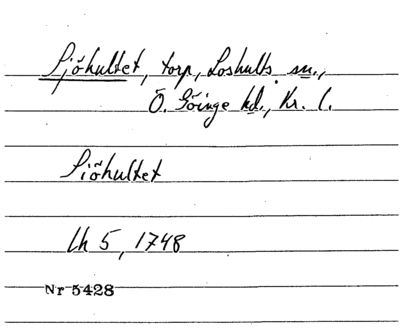 Sjöhultet, torp, Loshults sn.,
Ö. Göinge hd., Kr. l.
Siöhultet
Lh 5, 1748
Nr 5428